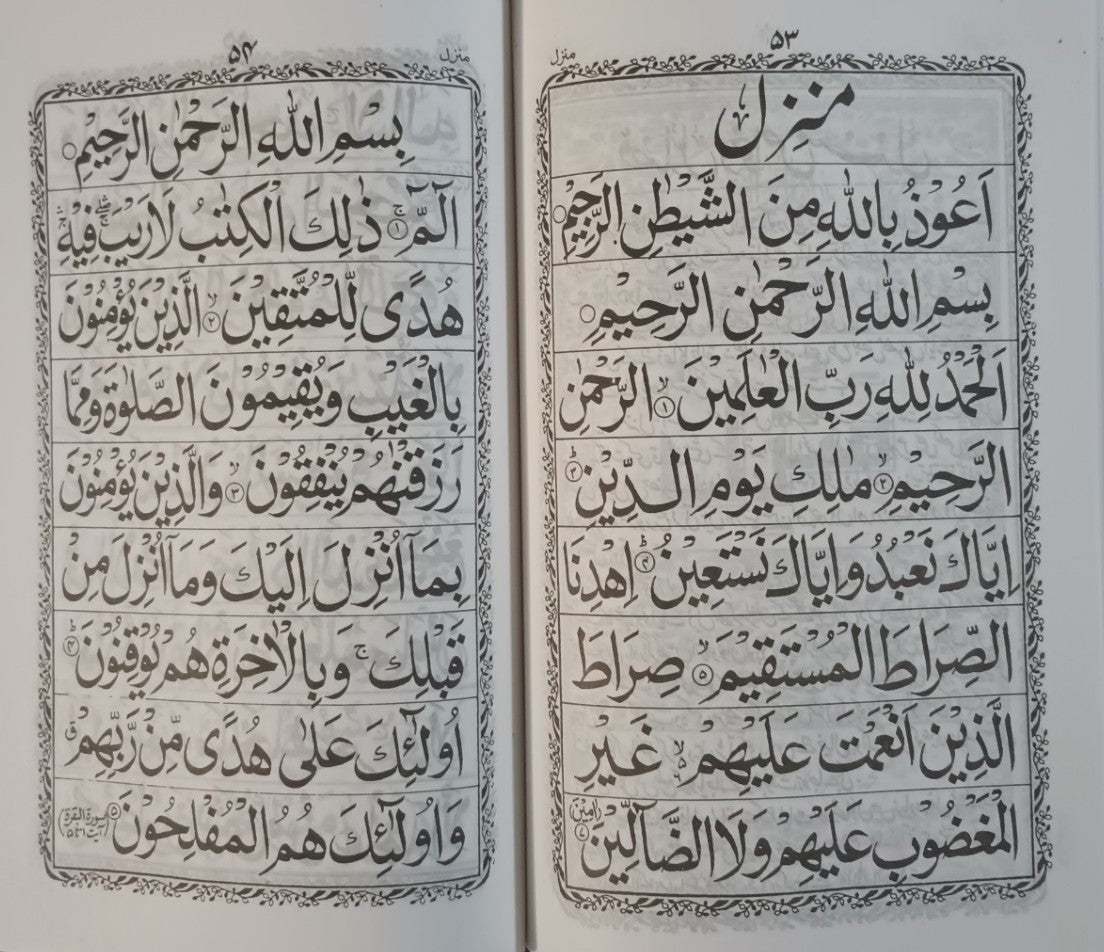 منزل
۵۳
منزل
اَعُوْذُ بِاللّٰهِ مِنَ الشَّيْطٰنِ الرَّجِيْمِ ○
بِسْمِ اللّٰهِ الرَّحْمٰنِ الرَّحِيْمِ ○
اَلْحَمْدُ لِلّٰهِ رَبِّ الْعٰلَمِيْنَ ۙ﴿۱﴾ الرَّحْمٰنِ
الرَّحِيْمِ ۙ﴿۲﴾ مٰلِكِ يَوْمِ الدِّيْنِ ؕ﴿۳﴾
اِيَّاكَ نَعْبُدُ وَاِيَّاكَ نَسْتَعِيْنُ ؕ﴿۴﴾ اِهْدِنَا
الصِّرَاطَ الْمُسْتَقِيْمَ ۙ﴿۵﴾ صِرَاطَ
الَّذِيْنَ اَنْعَمْتَ عَلَيْهِمْ ۙ۬ غَيْرِ
الْمَغْضُوْبِ عَلَيْهِمْ وَلَا الضَّآلِّيْنَ ﴿۷﴾ (اٰمِيْن)
منزل
۵۴
بِسْمِ اللّٰهِ الرَّحْمٰنِ الرَّحِيْمِ ○
الٓمّٓ ۚ﴿۱﴾ ذٰلِكَ الْكِتٰبُ لَا رَيْبَ ۛۖۚ فِيْهِ ۛۚ
هُدًى لِّلْمُتَّقِيْنَ ۙ﴿۲﴾ الَّذِيْنَ يُؤْمِنُوْنَ
بِالْغَيْبِ وَيُقِيْمُوْنَ الصَّلٰوةَ وَمِمَّا
رَزَقْنٰهُمْ يُنْفِقُوْنَ ۙ﴿۳﴾ وَالَّذِيْنَ يُؤْمِنُوْنَ
بِمَآ اُنْزِلَ اِلَيْكَ وَمَآ اُنْزِلَ مِنْ
قَبْلِكَ ۚ وَبِالْاٰخِرَةِ هُمْ يُوْقِنُوْنَ ؕ﴿۴﴾
اُولٰٓئِكَ عَلٰى هُدًى مِّنْ رَّبِّهِمْ ۗ
وَاُولٰٓئِكَ هُمُ الْمُفْلِحُوْنَ ﴿۵﴾ (سورة البقرة آیت ۱ تا ۵)